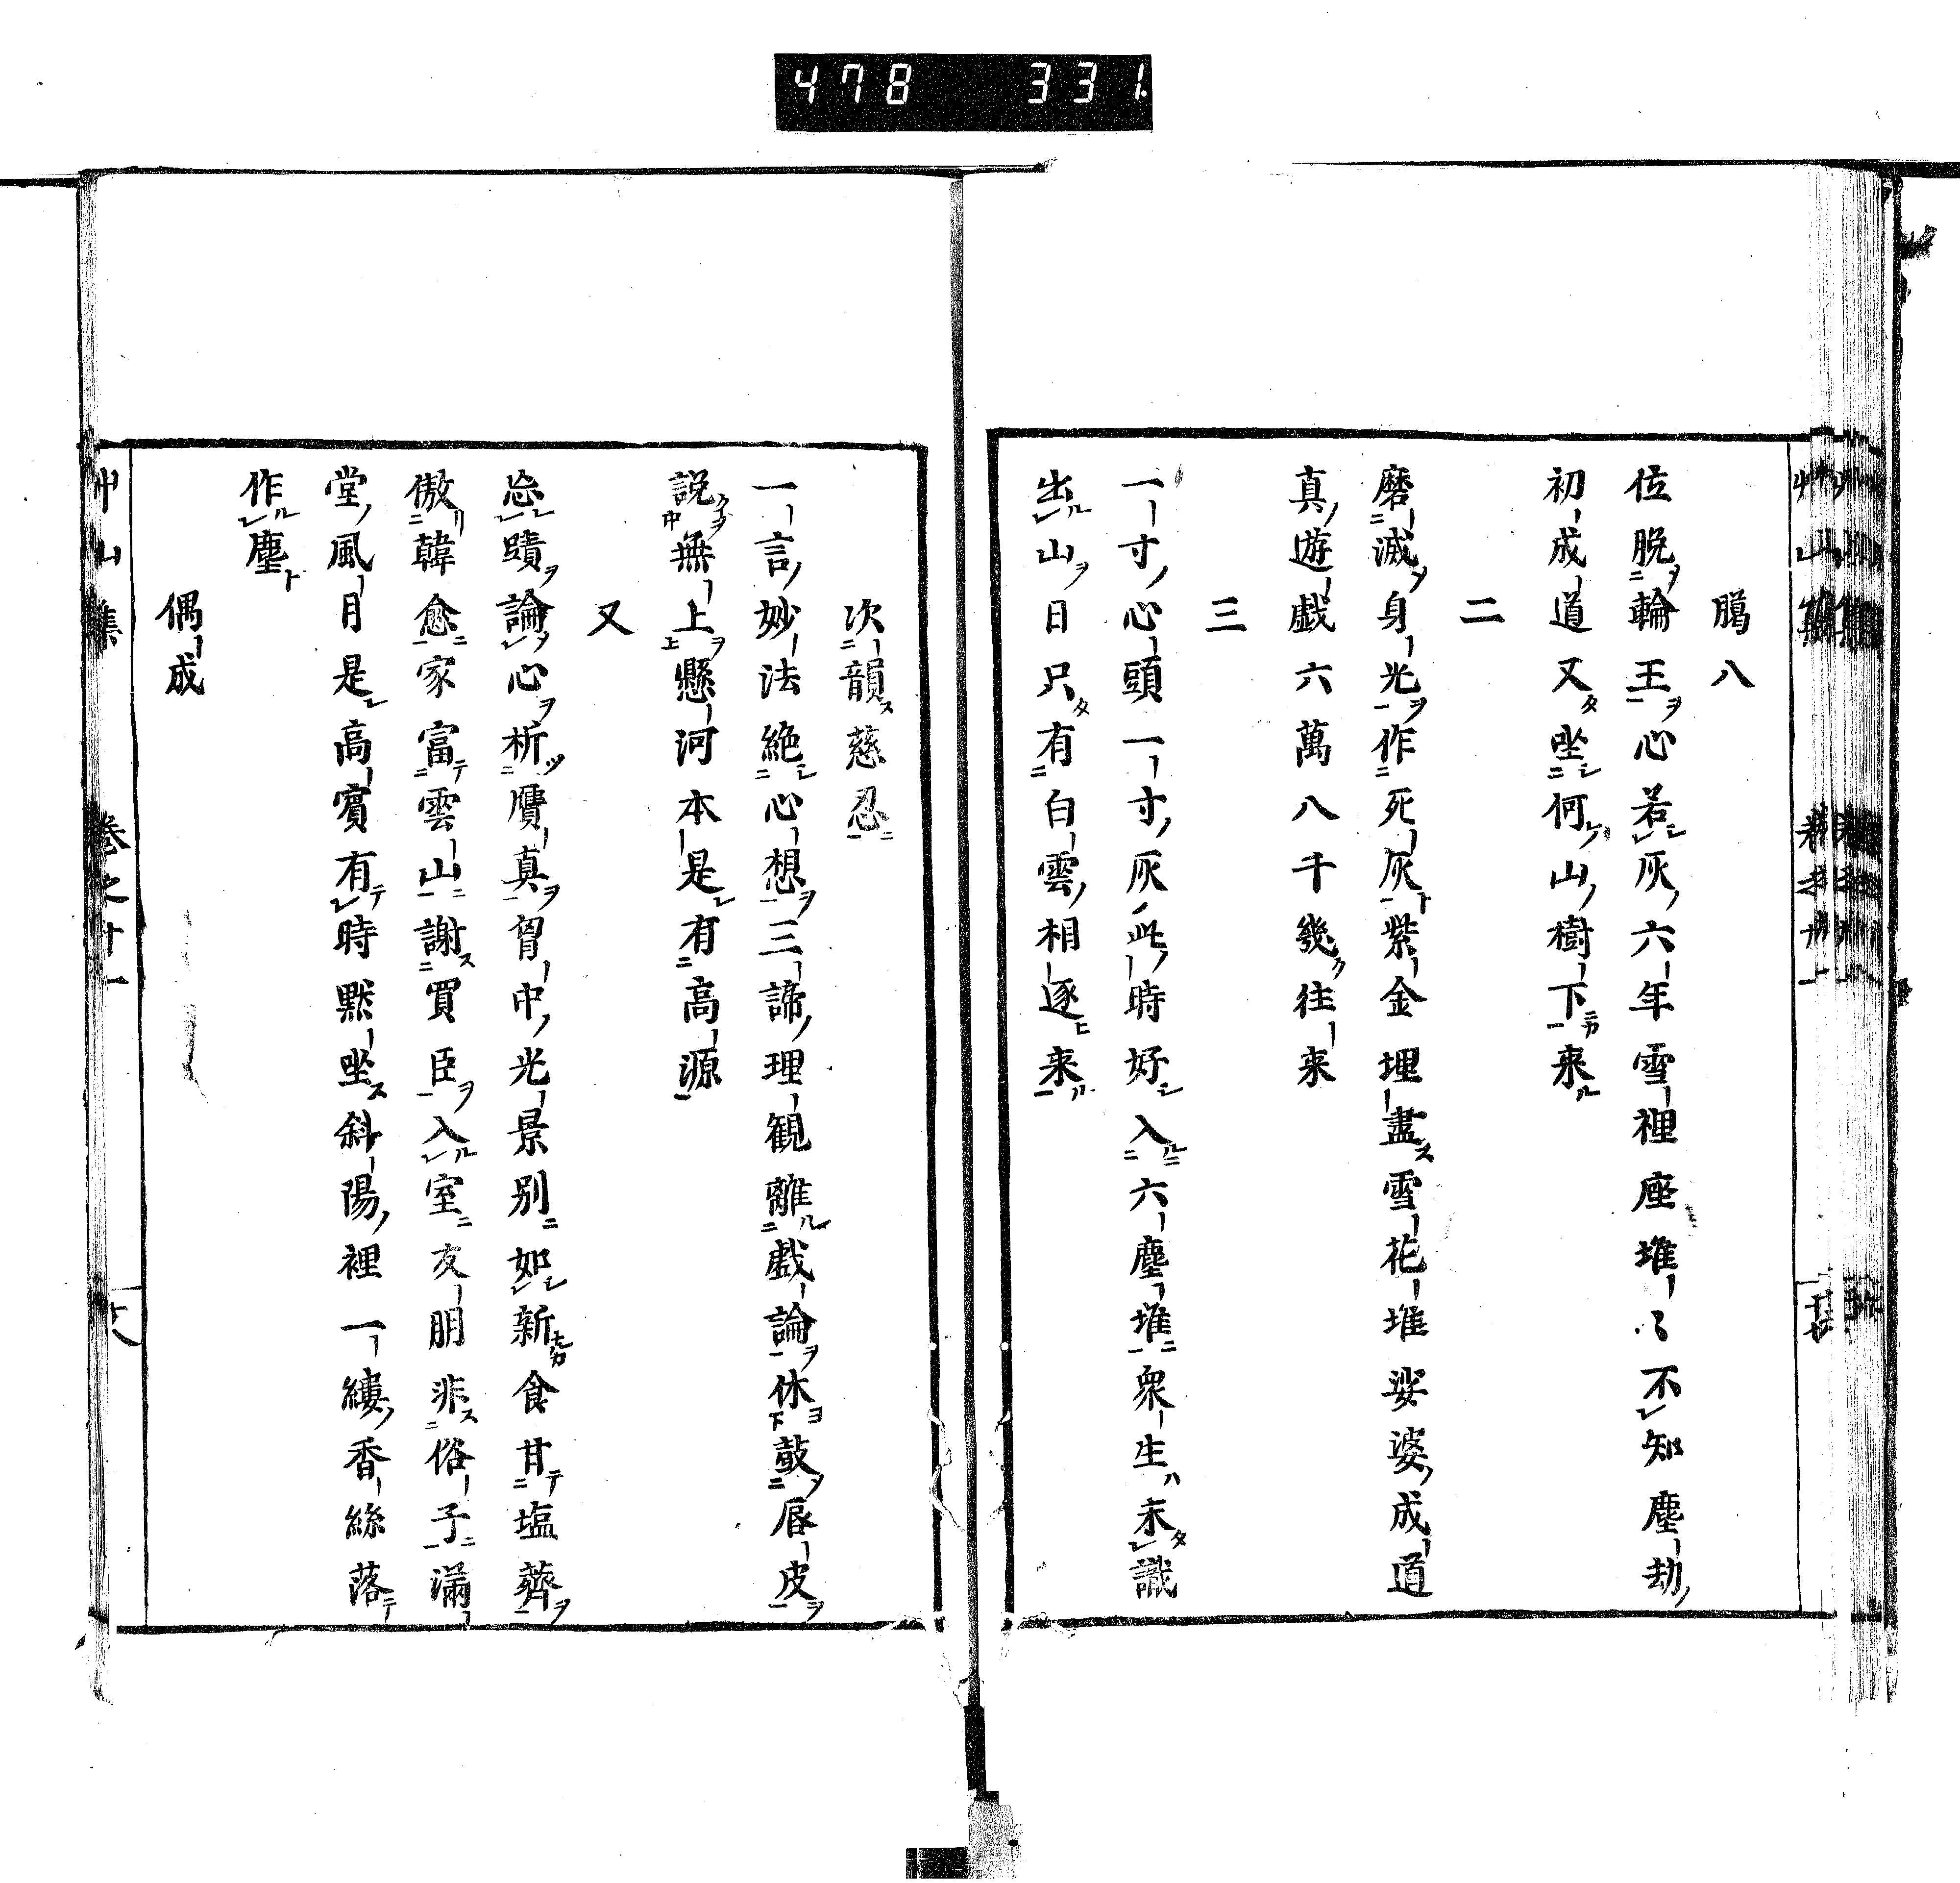 478 331
臈八
位脱輪王心若灰六年雪裡座堆〻不知塵劫
初成道又坐何山樹下来
二
磨滅身光作死灰紫金埋盡雪花堆娑婆成道
真遊戯六萬八千幾往来
三
一寸心頭一寸灰此時好入六塵堆衆生未識
出山日只有白雲相逐来
次韻慈忍
一言妙法絶心想三諦理観離戯論休鼓唇皮
説無上懸河本是有高源
又
忘蹟論心析贋真胷中光景別如新食甘塩薺
傲韓愈家富雲山謝買臣入室友朋非俗子満
堂風月是高賓有時黙坐斜陽裡一縷香絲落
作塵
偶成
艸山集 卷之十一